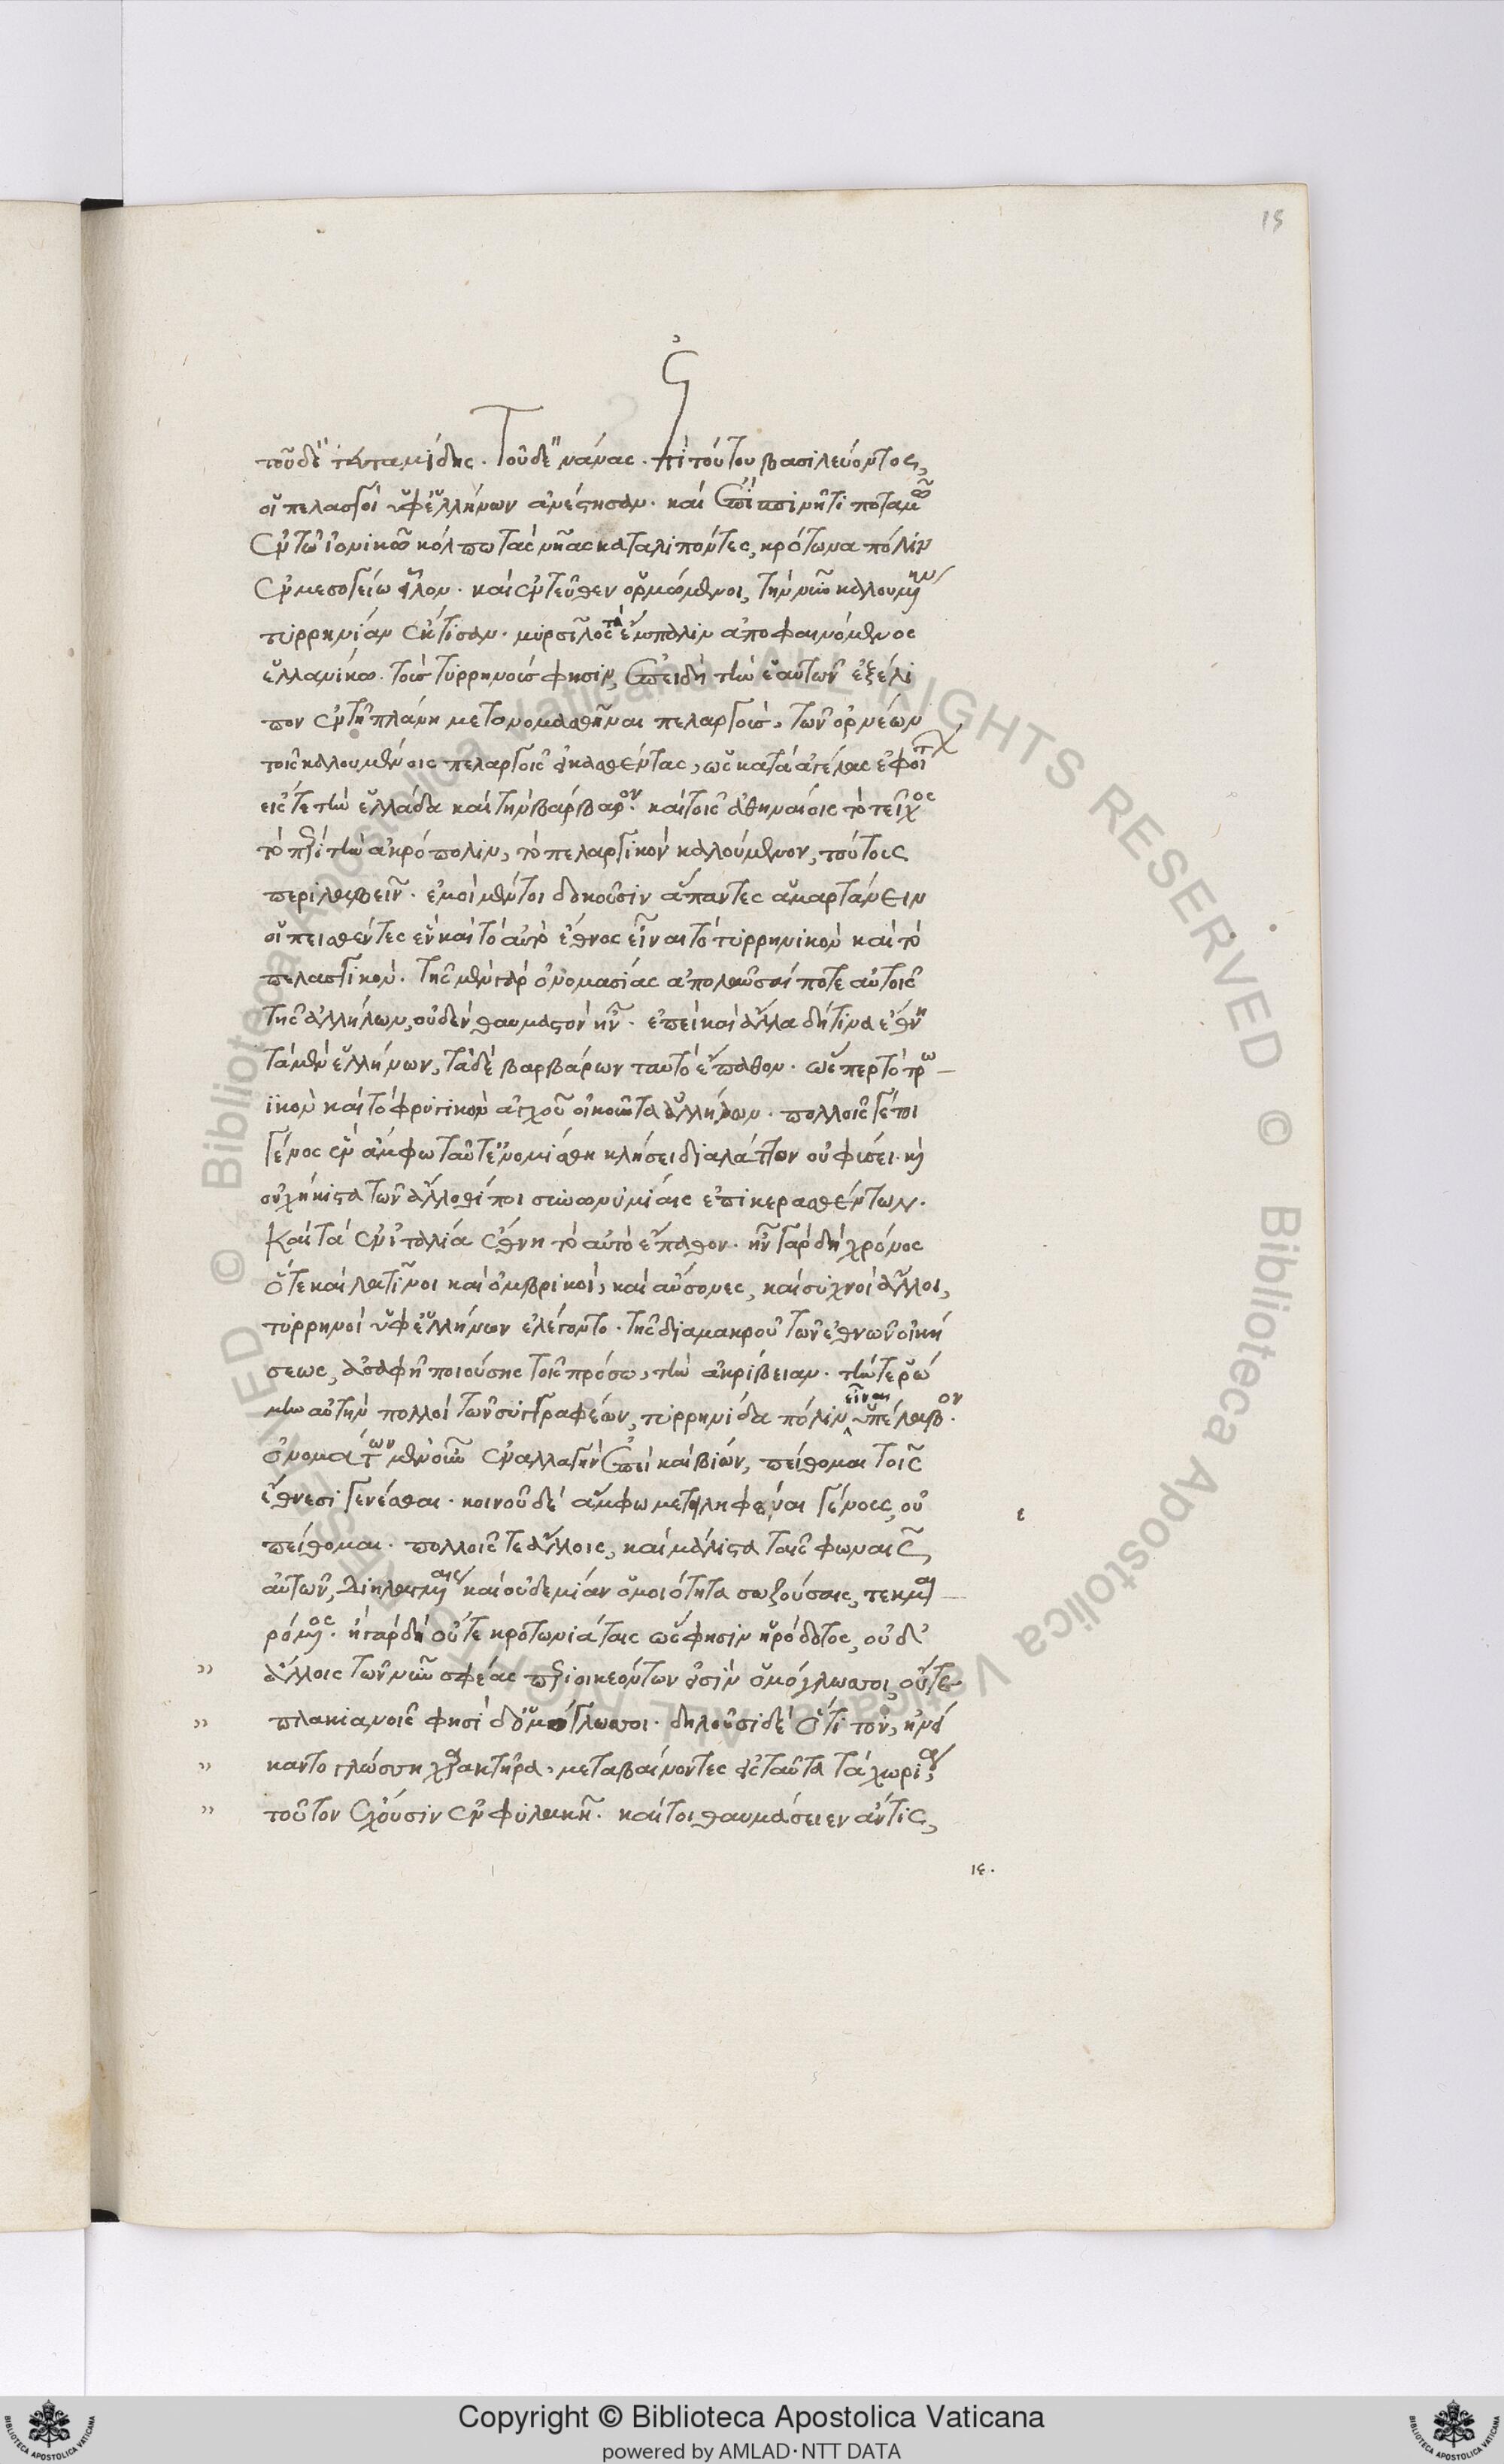 15
τοῦ δὲ τενταμίδης. Τοῦ δὲ νάνας. ἐπὶ τούτου βασιλεύοντος,
οἱ πελασγοὶ ὑφ' ἑλλήνων ἀνέστησαν. καὶ ἐπὶ σπινῆτι ποταμῶ
ἐν τῶ ἰονικῶ κόλπω τὰς νῆας καταλιπόντες, κρότωνα πόλιν
ἐν μεσογείω εἷλον. καὶ ἐντεῦθεν ὁρμώμενοι, τὴν νῦν καλουμένην
τυρρηνίαν ἔκτισαν. μυρσίλος τὰ ἔμπαλιν ἀποφαινόμενος
ἑλλανίκω. τοὺς τυρρηνούς φησιν, ἐπειδὴ τὴν ἑαυτῶν ἐξέλι
πον ἐν τῆ πλάνη μετονομασθῆναι πελαργούς, τῶν ὀρνέων
τοῖς καλουμένοις πελαργοῖς εἰκασθέντας, ὡς κατὰ ἀγέλας ἐφοίτων
εἴς τε τὴν ἑλλάδα καὶ τὴν βάρβαρον. καὶ τοῖς ἀθηναίοις τὸ τεῖχος
τὸ περὶ τὴν ἀκρόπολιν, τὸ πελαργικὸν καλούμενον, τούτους
περιλαβεῖν. ἐμοὶ μέντοι δοκοῦσιν ἅπαντες ἁμαρτάνειν
οἱ πεισθέντες ἓν καὶ τὸ αὐτὸ ἔθνος εἶναι τὸ τυρρηνικὸν καὶ τὸ
πελασγικόν. τῆς μὲν γὰρ ὀνομασίας ἀπολαῦσαί ποτε αὐτοῖς
τῆς ἀλλήλων, οὐδὲν θαυμαστὸν ἦν. ἐπεὶ καὶ ἄλλα δή τινα ἔθνη
τὰ μὲν ἑλλήνων, τὰ δὲ βαρβάρων ταυτὸ ἔπαθον. ὥσπερ τὸ τρω
ϊκὸν καὶ τὸ φρυγικὸν ἀγχοῦ οἰκοῦντα ἀλλήλων. πολλοῖς γέτοι
γένος ἓν ἄμφω ταῦτ' ἐνομίσθη κλήσει διαλάττον οὐ φύσει. καὶ
οὐχ ἥκιστα τῶν ἄλλοθί που συνωνυμίαις ἐπικερασθέντων.
Καὶ τὰ ἐν ἰταλία ἔθνη τὸ αὐτὸ ἔπαθον. ἦν γὰρ δὴ χρόνος
ὅτε καὶ λατῖνοι καὶ ὀμβρικοί, καὶ αὔσονες, καὶ συχνοὶ ἄλλοι,
τυρρηνοὶ ὑφ' ἑλλήνων ἐλέγοντο. τῆς διαμακροῦ τῶν ἐθνῶν οἰκή
σεως, ἀσαφῆ ποιούσης τοῖς πρόσω, τὴν ἀκρίβειαν. τήν τε ῥώ
μην αὐτὴν πολλοὶ τῶν συγγραφέων, τυρρηνίδα πόλιν εἶναι ὑπέλαβον.
ὀνομάτων μὲν οὖν ἐναλλαγὴν ἐπεὶ καὶ βίων, πείθομαι τοῖς
ἔθνεσι γενέσθαι. κοινοῦ δὲ ἄμφω μετειληφέναι γένους, οὐ
πείθομαι. πολλοῖς τε ἄλλοις, καὶ μάλιστα ταῖς φωναῖς
αὐτῶν, διηλαγμέναις καὶ οὐδεμίαν ὁμοιότητα σωζούσαις, τεκμαι
ρόμενος. ἡ γὰρ δὴ οὔτε κροτωνιάταις ὥς φησιν ἡρόδοτος, οὐδ'
ἄλλοις τῶν νῦν σφέας περιοικεόντων εἰσὶν ὁμόγλωσσοι, οὔτε
πλακιανοῖς φησὶ δ' ὁμόγλωσσοι. δηλοῦσι δὲ ὅτι τὸν, ἠνεί
καντο γλώσση χαρακτῆρα, μεταβαίνοντες ἐς ταῦτα τὰ χωρία,
τοῦτον ἔχουσιν ἐν φυλακῆ. καίτοι θαυμάσειεν ἄν τις,
ιε.
Copyright © Biblioteca Apostolica Vaticana
powered by AMLAD·NTT DATA